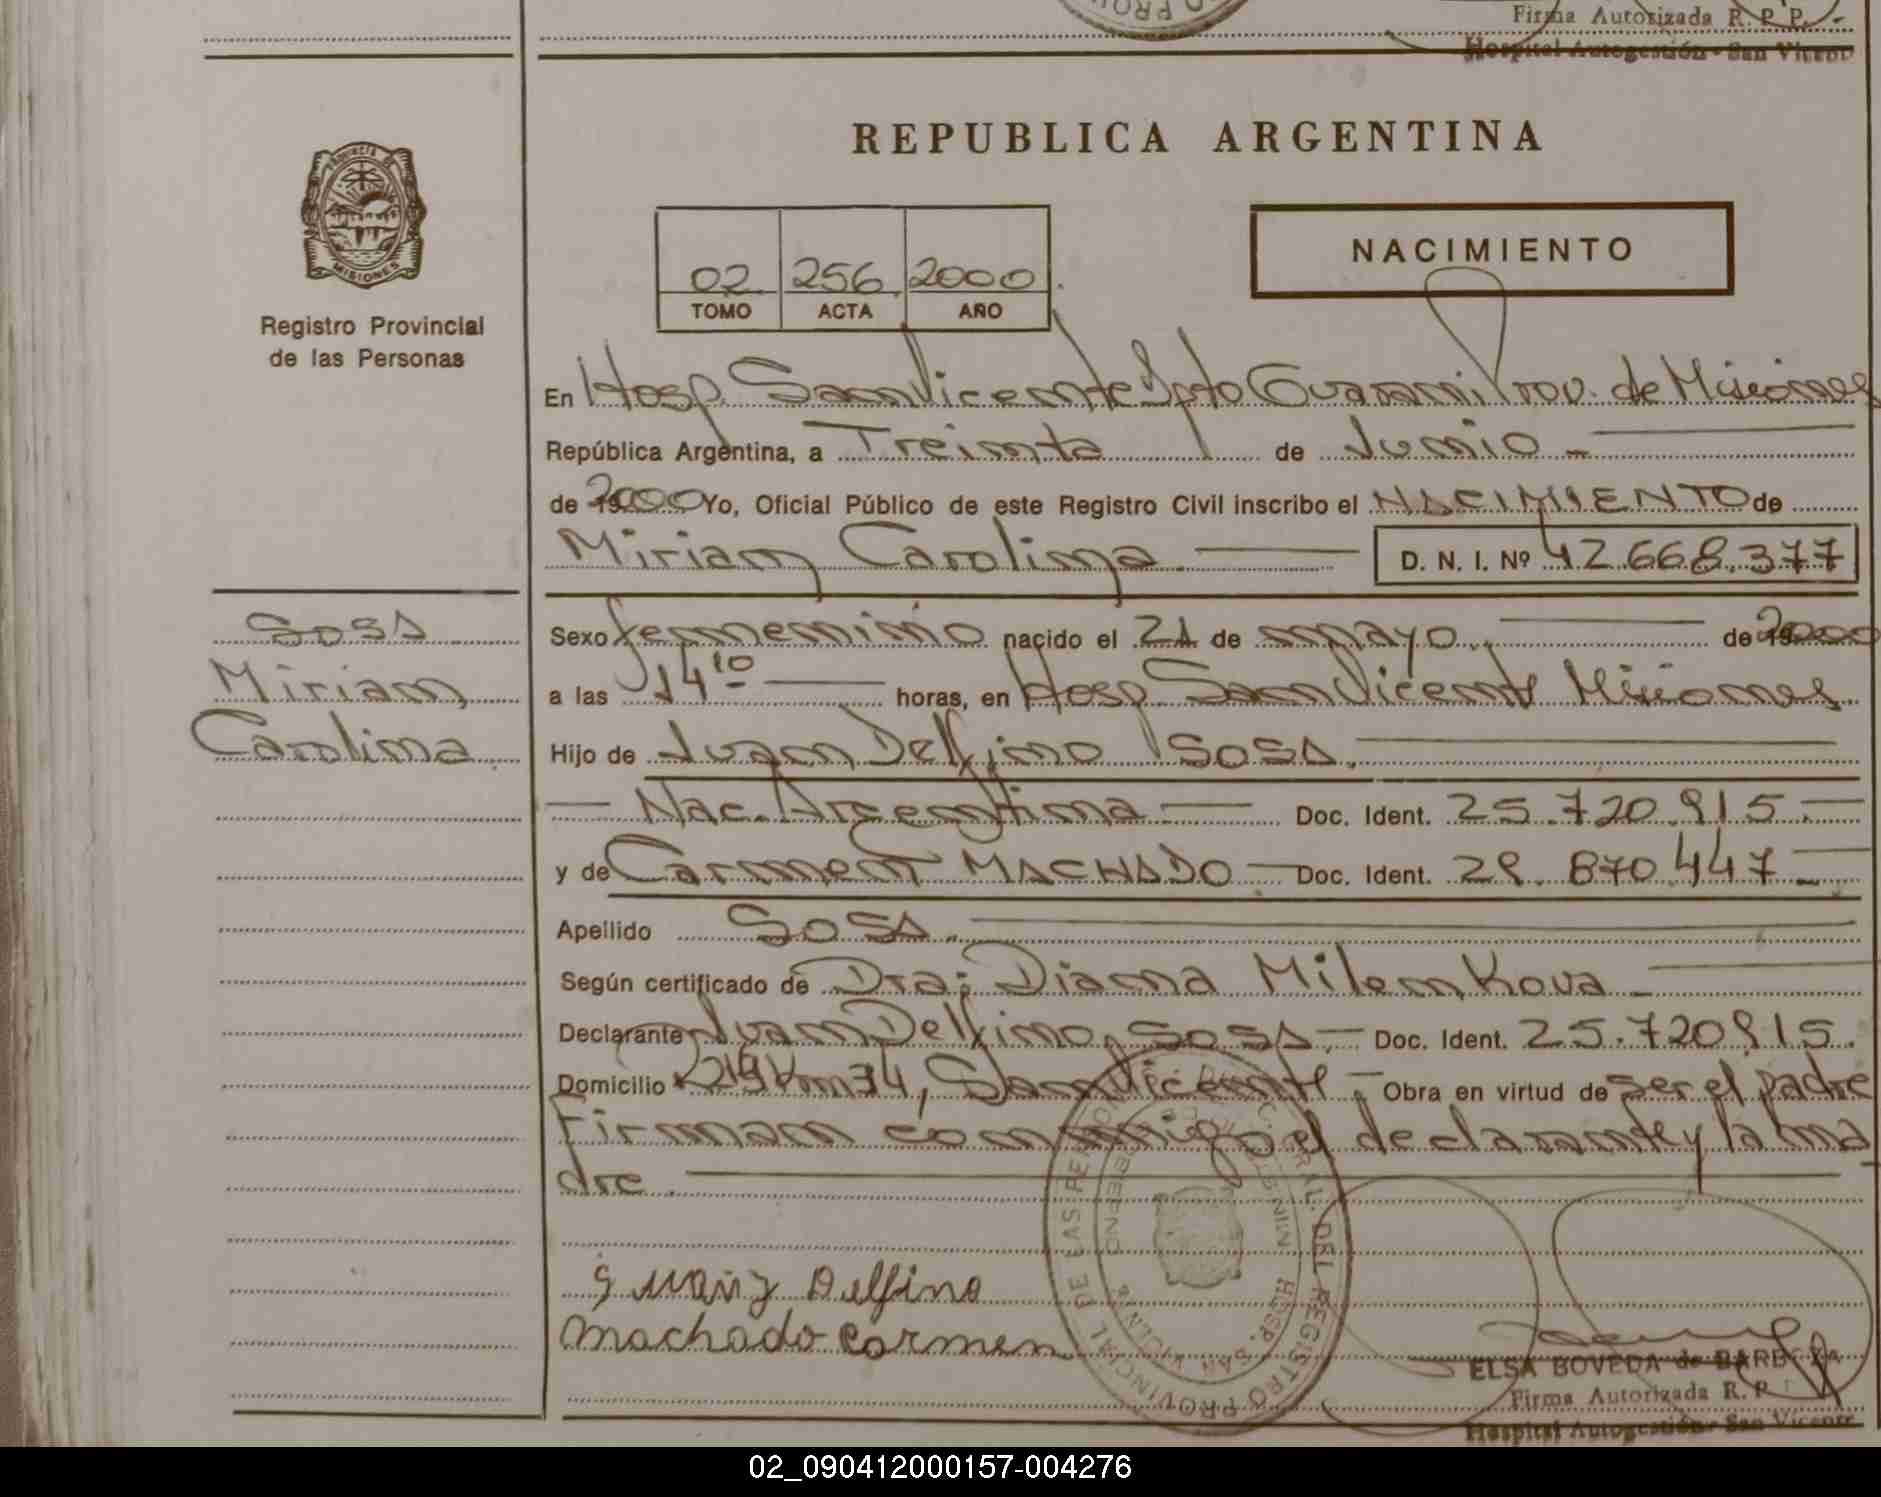 Firma Autorizada R. P. P.
Hospital Autogestión - San Vicente
REPUBLICA ARGENTINA
PROVINCIA DE
MISIONES
Registro Provincial
de las Personas
02 256 2000
TOMO ACTA AÑO
NACIMIENTO
En Hosp. San Vicente Dpto Guaraní Prov. de Misiones
República Argentina, a Treinta de Junio
de 2000 Yo, Oficial Público de este Registro Civil inscribo el NACIMIENTO de
Miriam Carolina D. N. I. Nº 42.668.377
Sosa
Miriam
Carolina
Sexo femenino nacido el 21 de mayo de 2000
a las 14 10 horas, en Hosp San Vicente Misiones
Hijo de Juan Delfino SOSA
Nac. Argentina Doc. Ident. 25.720.915
y de Carmen MACHADO Doc. Ident. 28.870.447
Apellido SOSA
Según certificado de Dra; Diana Milenkova
Declarante Juan Delfino SOSA Doc. Ident. 25.720915.
Domicilio Km 34, San Vicente Obra en virtud de ser el padre
Firman conmigo el declarante y la ma
dre.
Delfino
machado carmen
ELSA BOVEDA de BARBOZA
Firma Autorizada R. P.
Hospital Autogestión - San Vicente
02_090412000157-004276